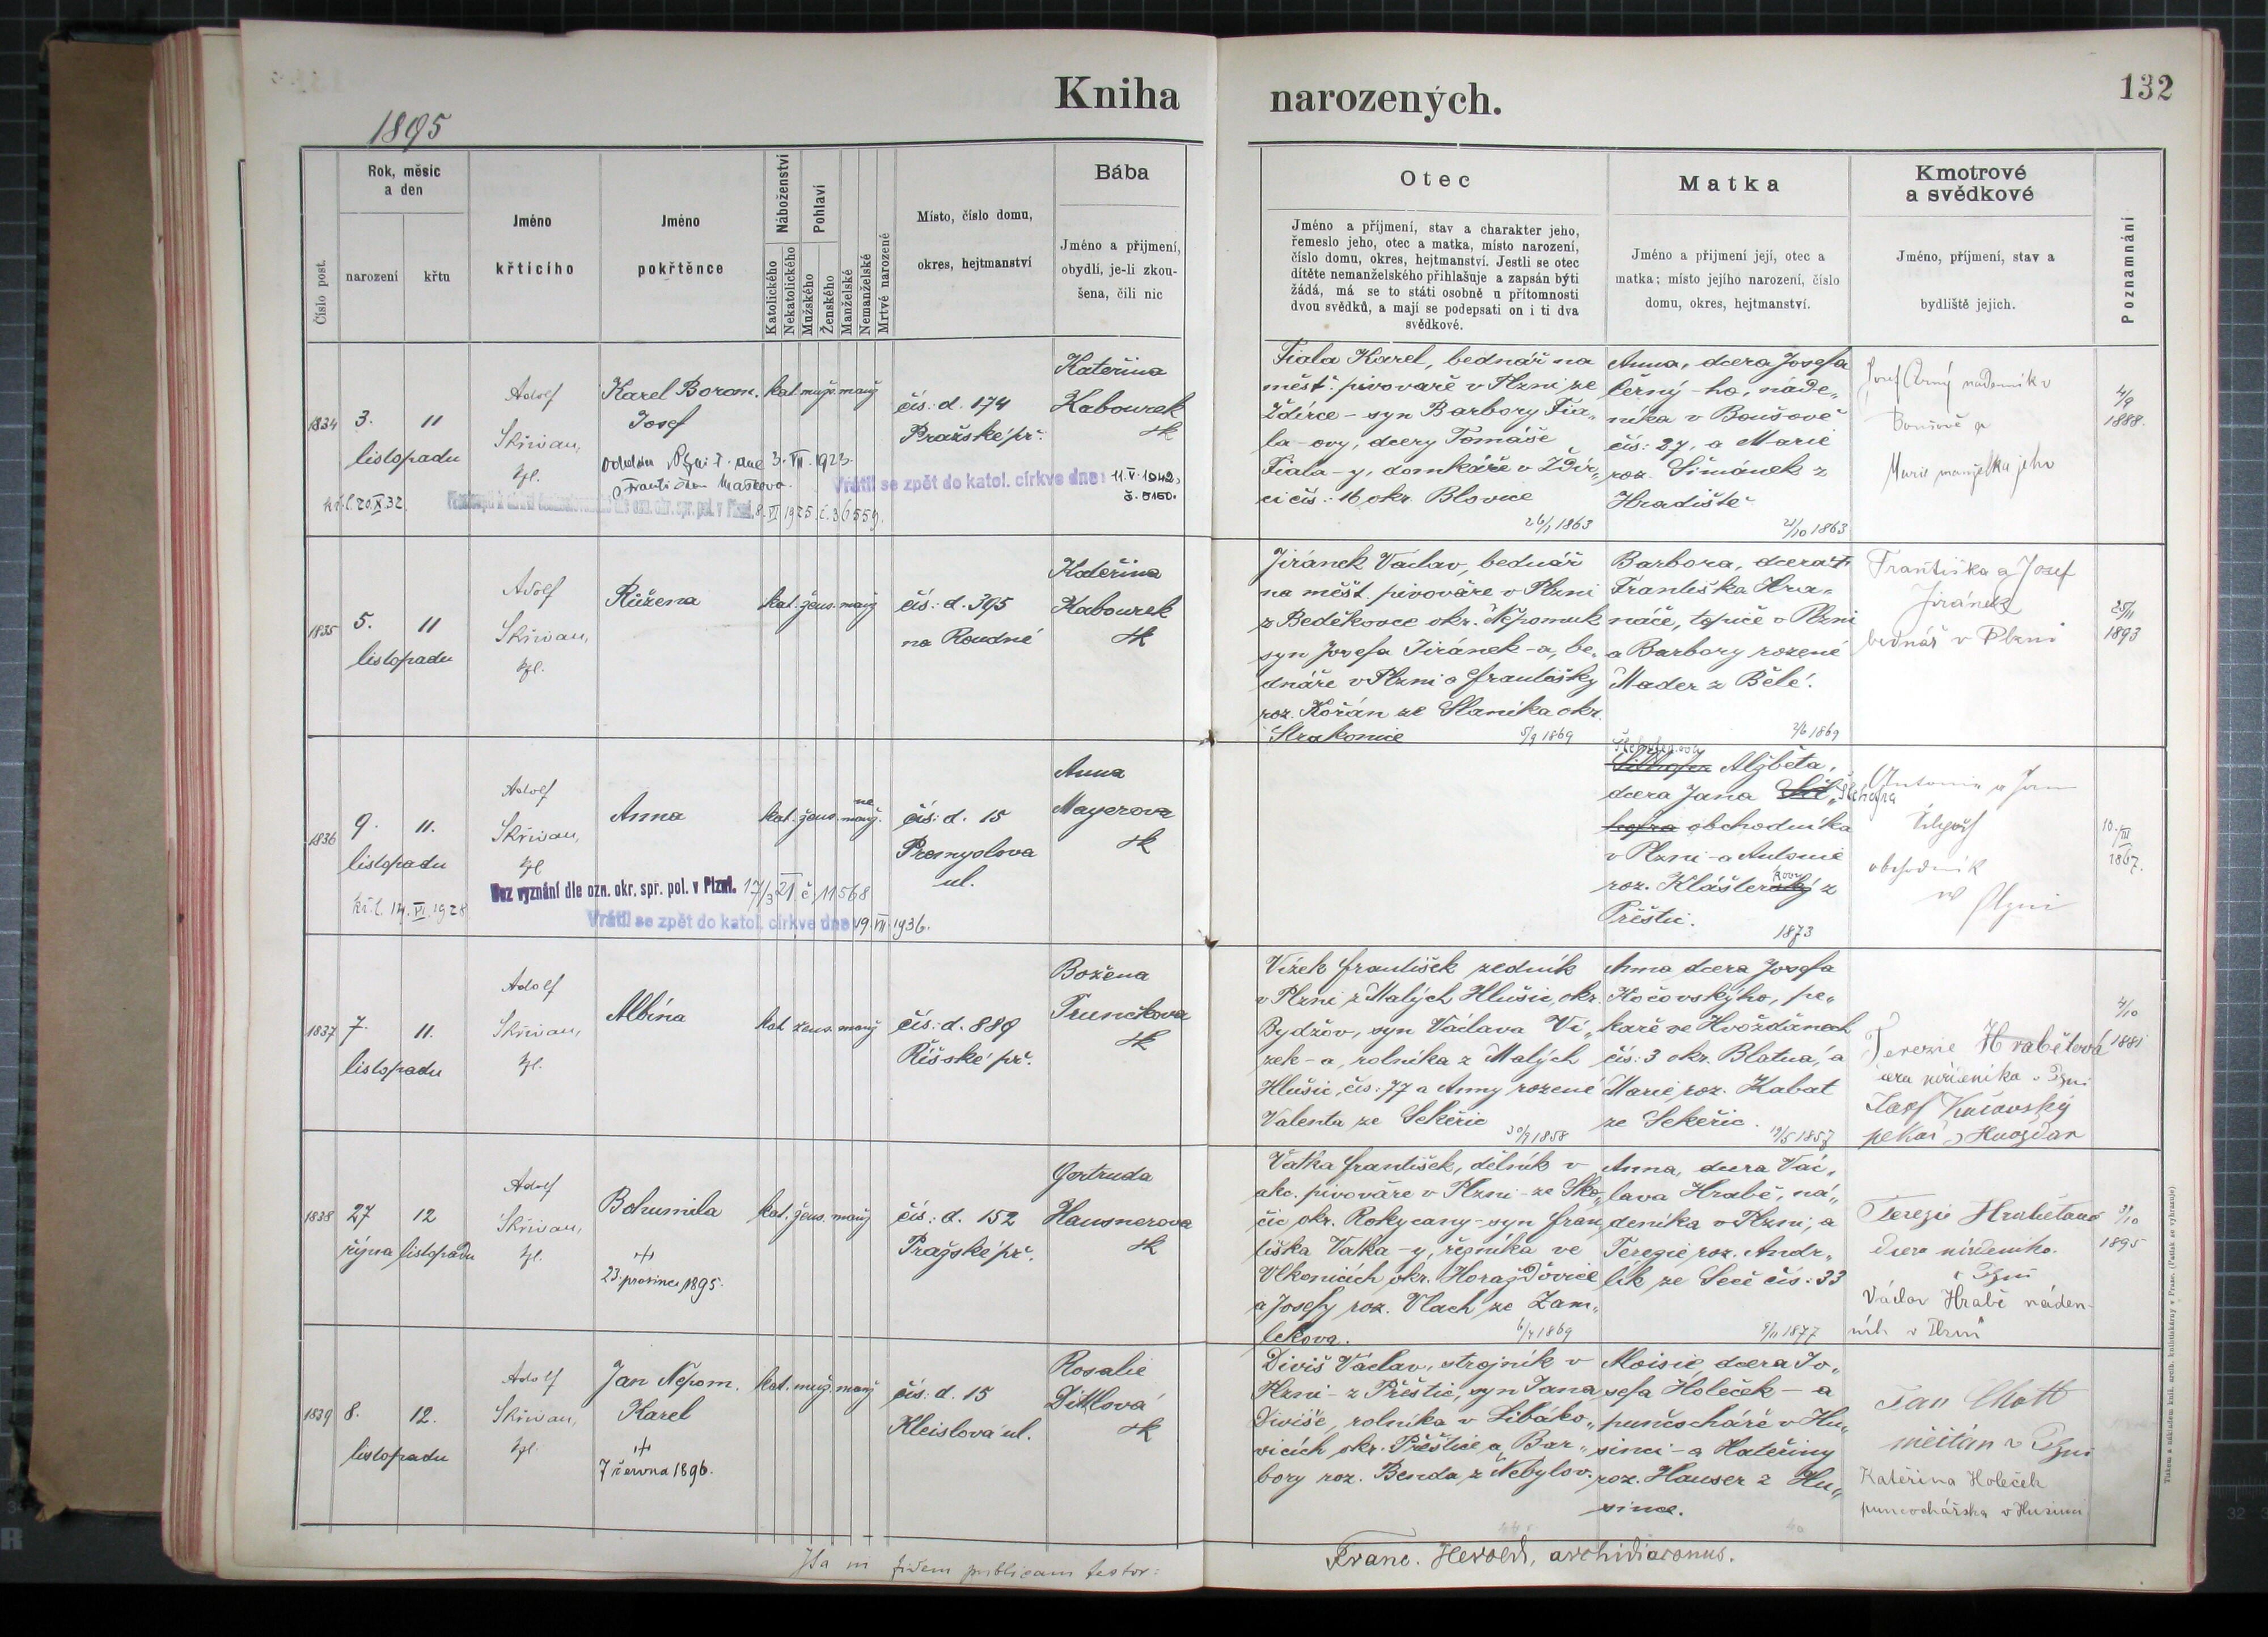 Kniha narozených.
132
1895
Číslo post.
Rok, měsíc
a den
narození
křtu
Jméno
křtícího
Jméno
pokřtěnce
Náboženství
Katolického
Nekatolického
Pohlaví
Mužského
Ženského
Manželské
Nemanželské
Mrtvě narozené
Místo, číslo domu,
okres, hejtmanství
Bába
Jméno a přijmení,
obydlí, je-li zkou-
šena, čili nic
Otec
Jméno a příjmení, stav a charakter jeho,
řemeslo jeho, otec a matka, místo narození,
číslo domu, okres, hejtmanství. Jestli se otec
dítěte nemanželského přihlašuje a zapsán býti
žádá, má se to státi osobně u přítomnosti
dvou svědků, a mají se podepsati on i ti dva
svědkové.
Matka
Jméno a přijmení její, otec a
matka; místo jejího narození, číslo
domu, okres, hejtmanství.
Kmotrové
a svědkové
Jméno, příjmení, stav a
bydliště jejich.
Poznamnání
1834
3. 11
listopadu
Adolf
Skřivan,
kpl.
Karel Borom.
Josef
3. VII. 1923.
kat. muž. manž
čís: d. 174
Pražské př.
Kateřina
Kabourek
zk
Vrátil se zpět do katol. církve dne: 11. V. 1942,
č. 5150.
8. VI 1925 č. 36559.
Fiala Karel, bednář na
měšť. pivovaře v Plzni ze
Ždírce – syn Barbory Fia„
la-ovy, dcery Tomáše
Fiala-y, domkáře v Ždír„
ci čís: 16 okr. Blovice
26/1 1863
Anna, dcera Josefa
Černý-ho, náde„
níka v Boušově
čís: 27, a Marie
roz. Šimánek z
Hradiště
21/10 1863
Josef Černý nádenník v
Boušově a
Marie manželka jeho
4/9
1888.
1835
5. 11
listopadu
Adolf
Skřivan,
kpl.
Růžena
kat. žens. manž
čís: d. 395
na Roudné
Kateřina
Kabourek
zk
Jiránek Václav, bednář
na měšť. pivováře v Plzni
z Beděkovce okr. Nepomuk
syn Josefa Jiránek-a, be„
dnáře v Plzni a Františky
roz. Kořán ze Slaníka okr.
Strakonice
5/9 1869
Barbora, dcera †
Františka Hra„
náče, topiče v Plzni
a Barbory rozené
Mader z Bělé.
2/6 1869
Františka a Josef
Jiránek
bednář v Plzni
25/11
1893
1836
9. 11.
listopadu
Adolf
Skřivan,
kpl
Anna
kat. žens. manž.
ne
čís: d. 15
Přemyslova
ul.
Anna
Mayerova
zk
Bez vyznání dle ozn. okr. spr. pol. v Plzni. 17/3 21 č 11568
Vrátil se zpět do katol. církve dne 19. VII. 1936.
Alžběta,
dcera Jana
obchodníka
v Plzni a Antonie
roz. Klášter z
Přeštic.
1873
Antonie a Jan
obchodník
v Plzni
10./III
1867.
1837
7. 11.
listopadu
Adolf
Skřivan,
kpl.
Albína
kat. žens. manž
čís: d. 889
Říšské př.
Božena
Trunečkova
zk
Vížek František zedník
v Plzni z Malých Hlušic, okr.
Bydžov, syn Václava Ví„
žek-a, rolníka z Malých
Hlušic, čís: 77 a Anny rozené
Valenta ze Sekeřic
30/9 1858
Anna dcera Josefa
Kočovskýho, pe„
kaře ve Hvožďanech
čís: 3 okr. Blatná, a
Marie roz. Kabat
ze Sekeřic.
19/5 1857
Terezie Hrabětová
dcera nádeníka v Plzni
Josef Kočovský
pekař v Hvožďan
4/10
1881
1838
27 12
října listopadu
Adolf
Skřivan,
kpl.
Bohumila
†
23. prosince 1895.
kat. žens. manž
čís: d. 152
Pražské př.
Gertruda
Hausnerova
zk
Vatka František, dělník v
akc. pivováře v Plzni – ze Sko„
čic okr. Rokycany – syn Fran„
tiška Vatka-y, řezníka ve
Vlkonicích okr. Horažďovice
a Josefy roz. Vlach ze Zam„
lekova.
6/4 1869
Anna, dcera Vác„
lava Hrabě, ná„
deníka v Plzni, a
Terezie roz. Andr„
lík ze Seče čís: 33
9/11 1877
Terezie Hrabětova
dcera nádeníka
v Plzni
Václav Hrabě náden-
ník v Plzni
9/10
1895
1839
8. 12.
listopadu
Adolf
Skřivan,
kpl.
Jan Nepom.
Karel
†
7 června 1896.
kat. muž. manž
čís: d. 15
Kleislova ul.
Rosalie
Dittlová
zk
Diviš Václav, strojník v
Plzni – z Přeštic, syn Jana
Diviše, rolníka v Libáko„
vicích okr. Přeštice a Bar„
bory roz. Benda z Nebylov.
Aloisie, dcera Jo„
sefa Holeček – a
punčocháře v Hu„
sinci – a Kateřiny
roz. Hauser z Hu„
since.
Jan Chott
měšťan v Plzni
Kateřina Holeček
punčochářka v Husinci
Ita in fidem publicam testor:
Franc. Herold, archidiaconus.